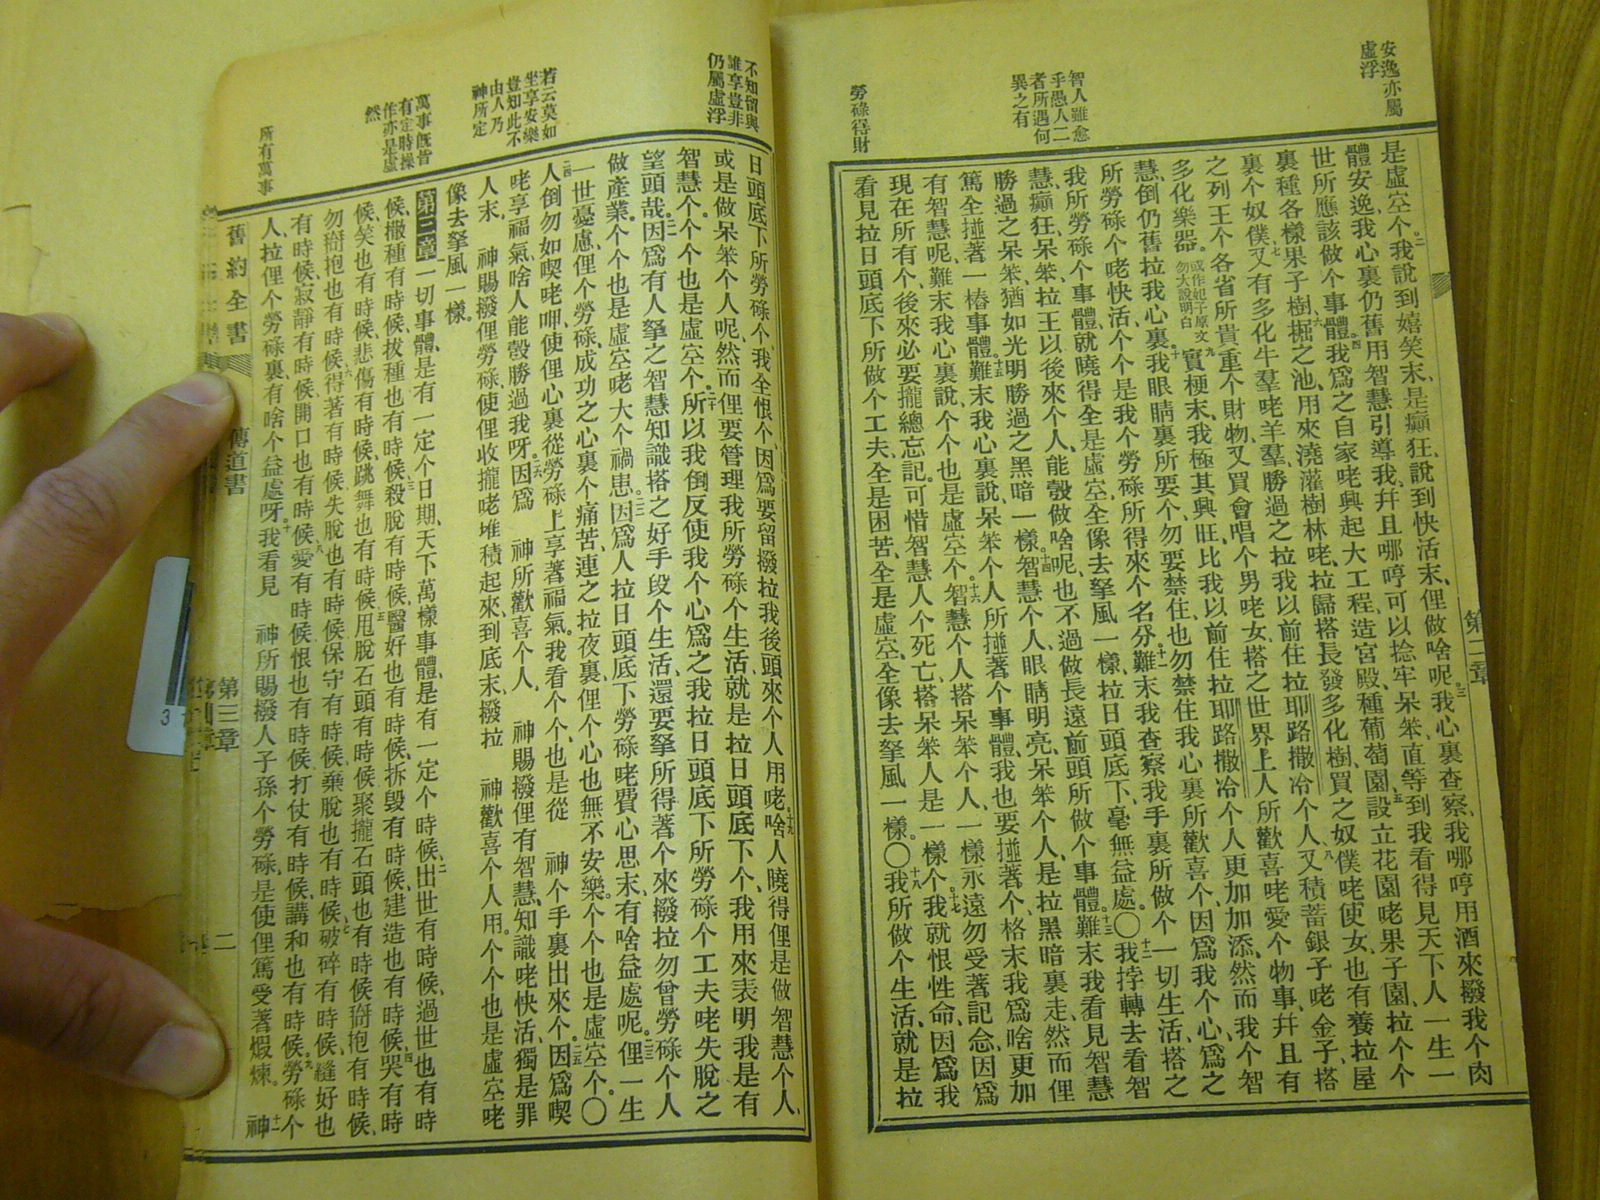 安逸亦屬
虛浮
智人雖愈
乎愚人二
者所遇何
異之有
勞碌得財
第二章
是虛空个我說到嬉笑末是癲狂說到快活末俚做啥呢我心裏查察我哪哼用酒來撥我个肉
體安逸我心裏仍舊用智慧引導我幷且哪哼可以捻牢呆笨直等到我看得見天下人一生一
世所應該做个事體我爲之自家咾興起大工程造宮殿種葡萄園設立花園咾果子園拉个个
裏種各樣果子樹掘之池用來澆灌樹林咾拉歸搭長發多化樹買之奴僕咾使女也有養拉屋
裏个奴僕又有多化牛羣咾羊羣勝過之拉我以前住拉耶路撒冷个人又積蓄銀子咾金子搭
之列王个各省所貴重个財物又買會唱个男咾女搭之世界上人所歡喜咾愛个物事幷且有
多化樂器或作妃子原文勿大說明白實梗末我極其興旺比我以前住拉耶路撒冷个人更加加添然而我个智
慧倒仍舊拉我心裏我眼睛裏所要个勿要禁住也勿禁住我心裏所歡喜个因爲我个心爲之
所勞碌个咾快活个个是我个勞碌所得來个名分難末我查察我手裏所做个一切生活搭之
我所勞碌个事體就曉得全是虛空全像去拏風一樣拉日頭底下毫無益處〇我挬轉去看智
慧癲狂呆笨拉王以後來个人能彀做啥呢也不過做長遠前頭所做个事體難末我看見智慧
勝過之呆笨猶如光明勝過之黑暗一樣智慧个人眼睛明亮呆笨个人是拉黑暗裏走然而俚
篤全搪著一樁事體難末我心裏說呆笨个人所搪著个事體我也要搪著个格末我爲啥更加
有智慧呢難末我心裏說个个也是虛空个智慧个人搭呆笨个人一樣永遠勿受著記念因爲
現在所有个後來必要攏總忘記可惜智慧人个死亡搭呆笨人是一樣个我就恨性命因爲我
看見拉日頭底下所做个工夫全是困苦全是虛空全像去拏風一樣〇我所做个生活就是拉
不知留與
誰享豈非
仍屬虛浮
若云莫如
坐享安樂
豈知此不
由人乃
神所定
萬事旣皆
有定時操
作亦是虛
然
所有萬事
日頭底下所勞碌个我全恨个因爲要留撥拉我後頭來个人用咾啥人曉得俚是做智慧个人
或是做呆笨个人呢然而俚要管理我所勞碌个生活就是拉日頭底下个我用來表明我是有
智慧个个个也是虛空个所以我倒反使我个心爲之我拉日頭底下所勞碌个工夫咾失脫之
望頭哉因爲有人拏之智慧知識搭之好手段个生活還要拏所得著个來撥拉勿曾勞碌个人
做產業个个也是虛空咾大个禍患因爲人拉日頭底下勞碌咾費心思末有啥益處呢俚一生
一世憂慮俚个勞碌成功之心裏个痛苦連之拉夜裏俚个心也無不安樂个个也是虛空个〇
人倒勿如喫咾呷使俚心裏從勞碌上享著福氣我看个个也是從 神个手裏出來个因爲喫
咾享福氣啥人能彀勝過我呀因爲 神所歡喜个人 神賜撥俚有智慧知識咾快活獨是罪
人末 神賜撥俚勞碌使俚收攏咾堆積起來到底末撥拉 神歡喜个人用个个也是虛空咾
像去拏風一樣
第三章一切事體是有一定个日期天下萬樣事體是有一定个時候出世有時候過世也有時
候撒種有時候拔種也有時候殺脫有時候醫好也有時候拆毀有時候建造也有時候哭有時
候笑也有時候悲傷有時候跳舞也有時候甩脫石頭有時候聚攏石頭也有時候㧱抱有時候
勿㧱抱也有時候得著有時候失脫也有時候保守有時候棄脫也有時候破碎有時候縫好也
有時候寂靜有時候開口也有時候愛有時候恨也有時候打仗有時候講和也有時候勞碌个
人拉俚个勞碌裏有啥个益處呀我看見 神所賜撥人子孫个勞碌是使俚篤受著煆煉 神
舊約全書
傳道書
第三章
二
3